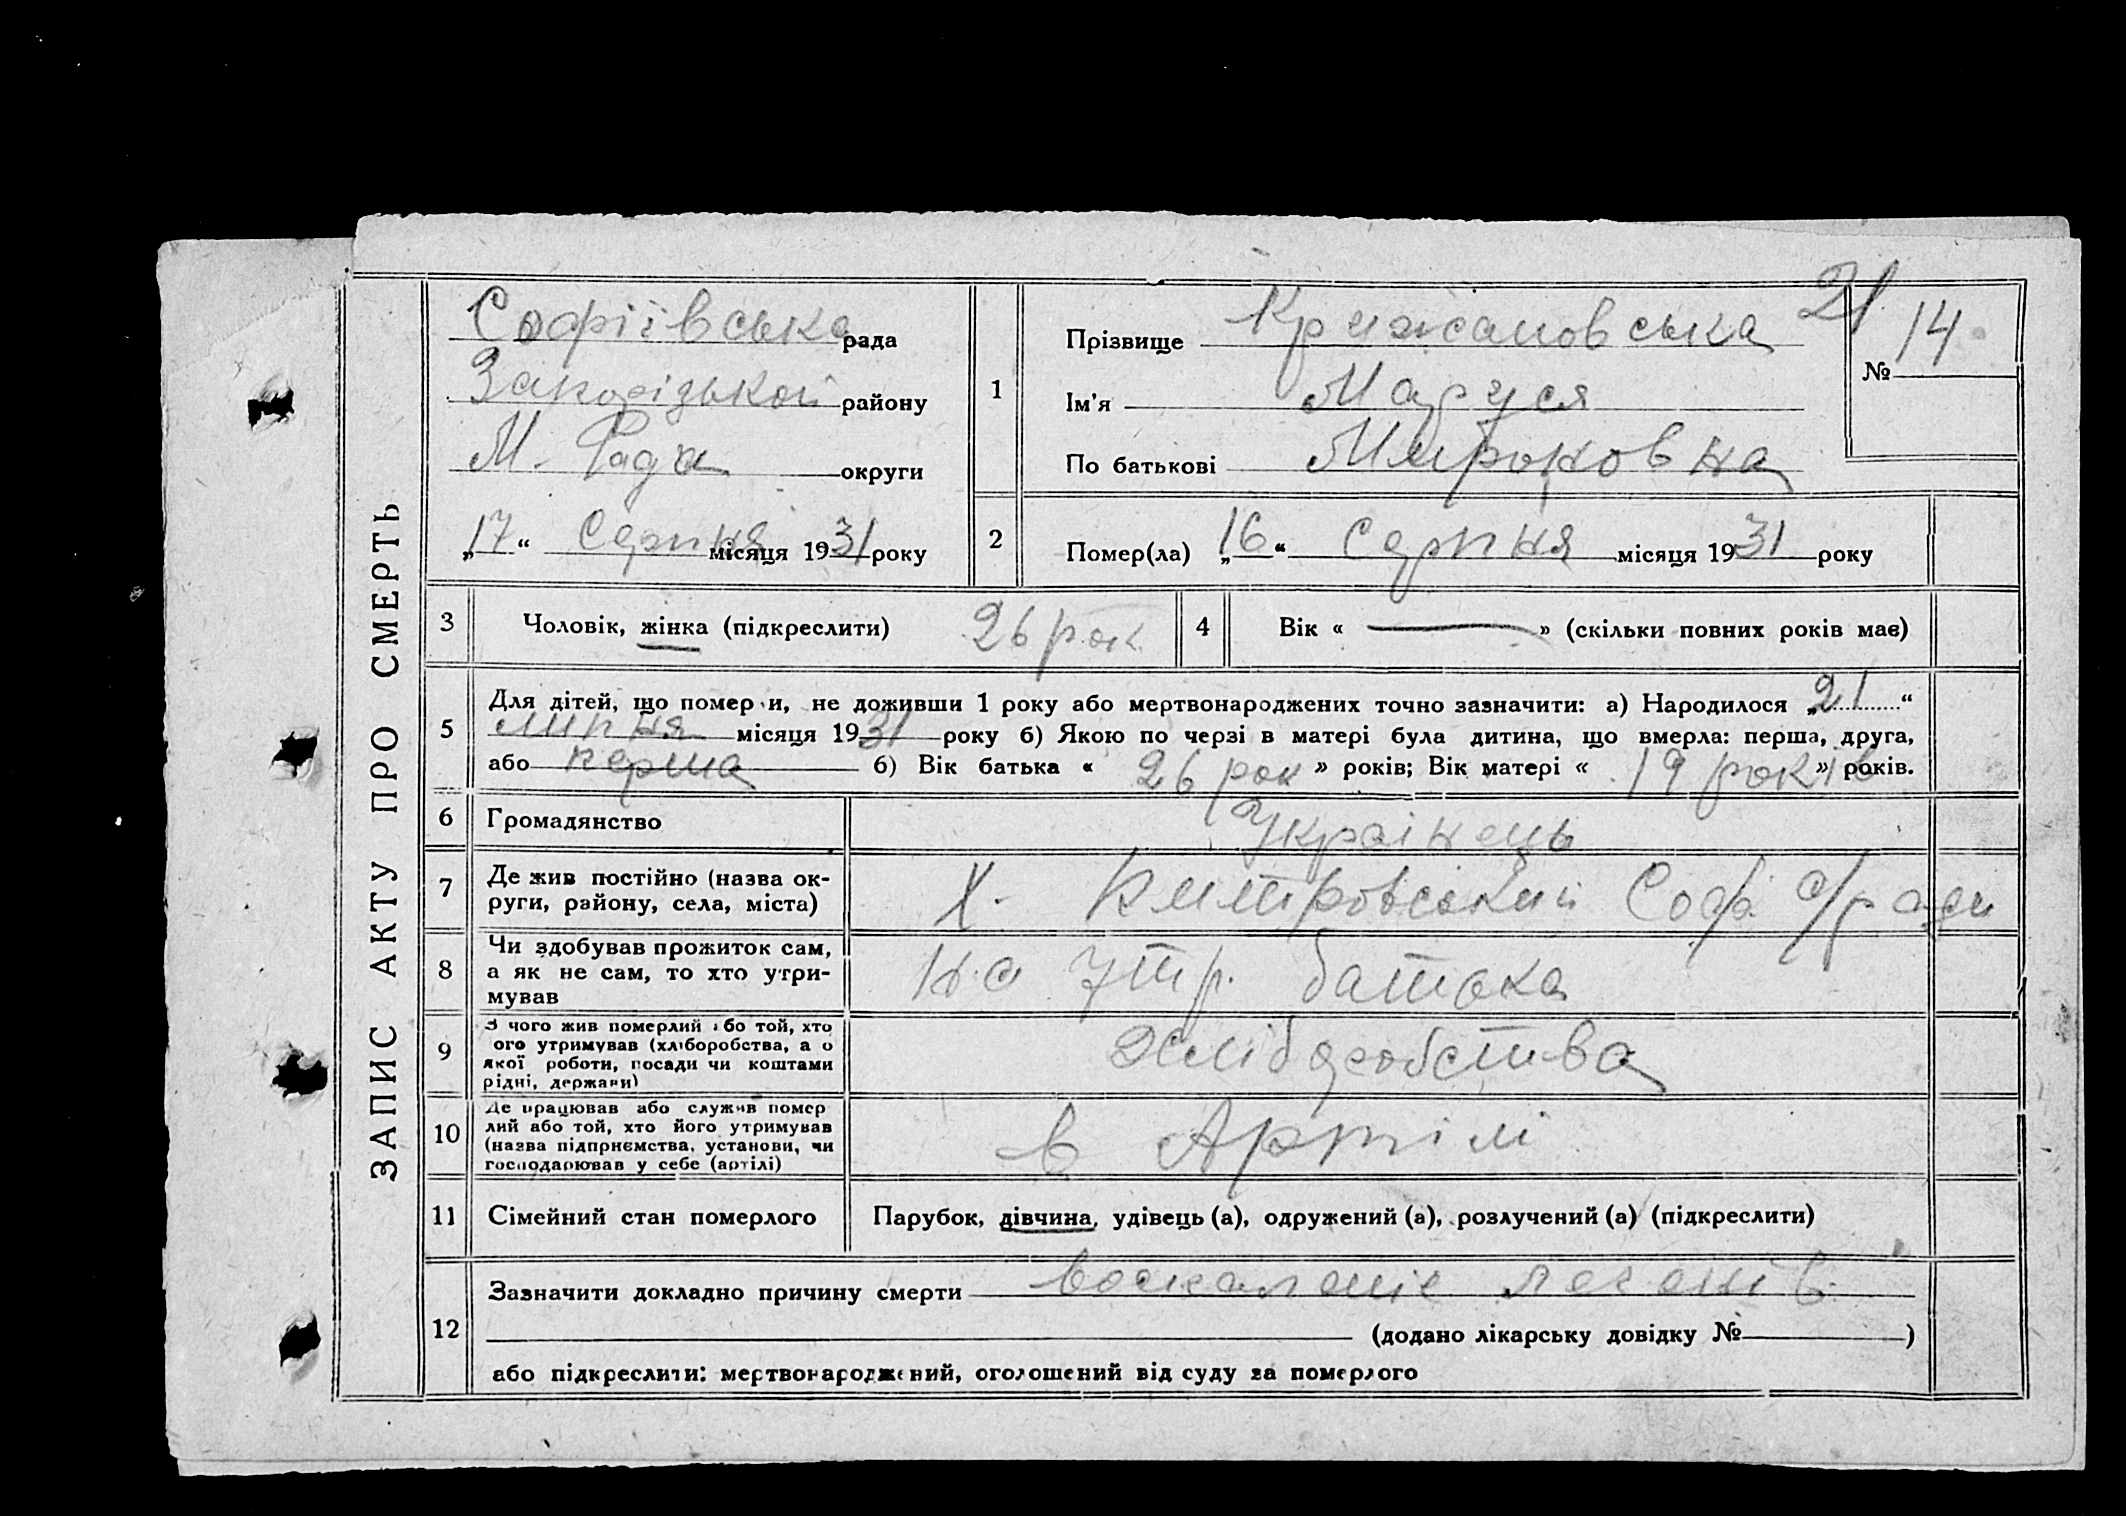 ЗАПИС АКТУ ПРО СМЕРТЬ
Софіївська рада
Запорізької району
М. Рада округи
„17“ Серпня місяця 1931 року
1
Прізвище Кржановська
Ім'я Маруся
По батькові
21
№ 14
2
Помер(ла) „16“ Серпня місяця 1931 року
3
Чоловік, жінка (підкреслити) 26 рок
4
Вік « — » (скільки повних років має)
5
Для дітей, що помер и, не доживши 1 року або мертвонароджених точно зазначити: а) Народилося „21“
липня місяця 1931 року б) Якою по черзі в матері була дитина, що вмерла: перша, друга,
або перша б) Вік батька « 26 рок » років; Вік матері « 19 років » років.
6
Громадянство
Українець
7
Де жив постійно (назва ок-
руги, району, села, міста)
Х. Софі с/ради
8
Чи здобував прожиток сам,
а як не сам, то хто утри-
мував
на утр. батька
9
З чого жив померлий або той, хто
ого утримував (хліборобства, а о
якої роботи, посади чи коштами
рідні, держави)
Хліборобства
10
Де працював або служив помер
лий або той, хто його утримував
(назва підприємства, установи, чи
господарював у себе (артілі)
в Артілі
11
Сімейний стан померлого
Парубок, дівчина, удівець (а), одружений (а), розлучений (а) (підкреслити)
12
Зазначити докладно причину смерти
(додано лікарську довідку № )
або підкреслити: мертвонароджений, оголошений від суду за померлого